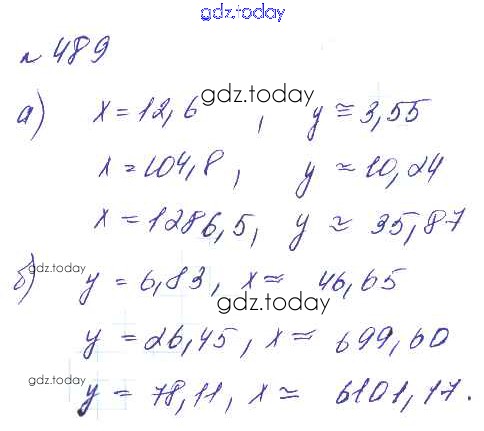 gdz.today
№ 489
а) x = 12,6, y ≈ 3,55
gdz.today
x = 104,8, y ≈ 10,24
x = 1286,5, y ≈ 35,87
gdz.today
б) y = 6,83, x ≈ 46,65
gdz.today
y = 26,45, x ≈ 699,60
gdz.today
y = 78,11, x ≈ 6101,17.